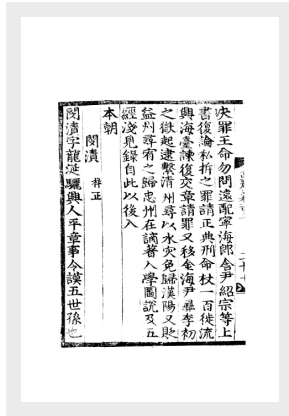 決罪王命勿問遠配寧海郎舍尹紹宗等上
書復論私折之罪請正典刑命杖一百徙流
興海臺諫復交章請罪又移金海尹彝李初
之獄起逮繫清州尋以水災免歸漢陽又貶
益州尋宥之歸忠州在謫著入學圖說及五
經淺見錄自此以後入
本朝
閔漬
閔漬字龍涎驪興人平章事令謨五世孫也